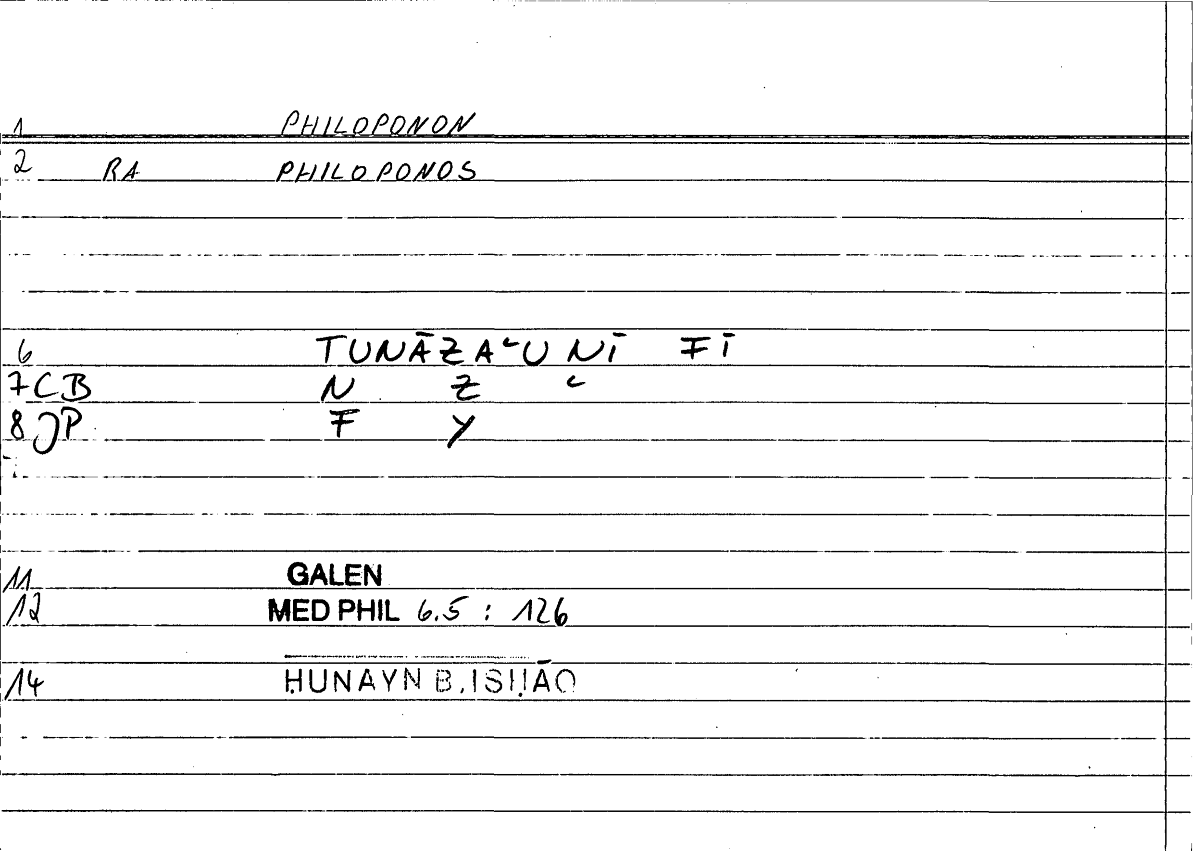 1 PHILOPONON
2 RA PHILOPONOS
6 TUNĀZAʿUNĪ FĪ
7 CB N Z ʿ
8 JP F Y
11 GALEN
12 MED PHIL 6.5 : 126
14 ḤUNAYN B. ISḤĀQ